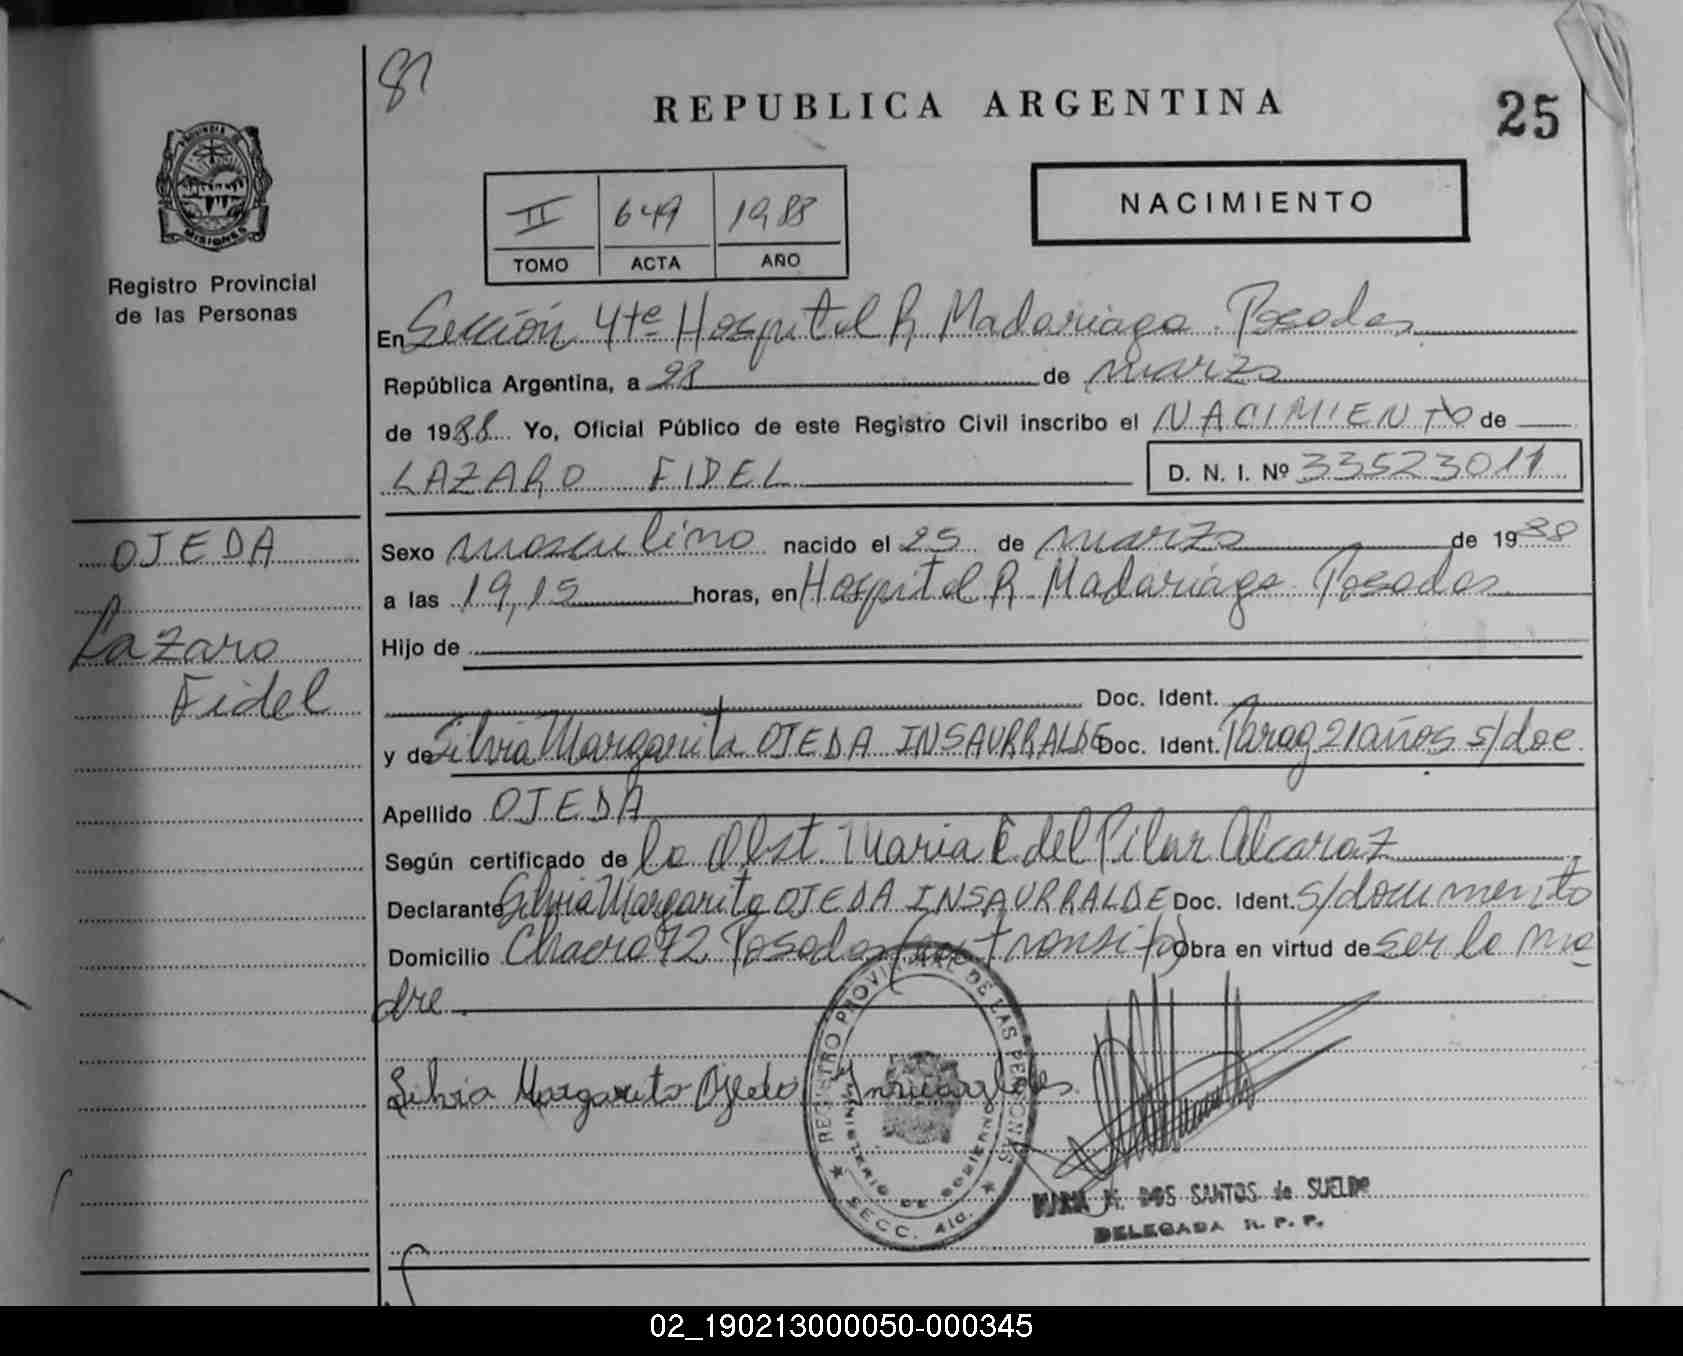 81
REPUBLICA ARGENTINA
25
PROVINCIA
MISIONES
Registro Provincial
de las Personas
II 649 1988
TOMO ACTA AÑO
NACIMIENTO
En Sección 4ta Hospital R Madariaga Posadas
República Argentina, a 28 de marzo
de 1988 Yo, Oficial Público de este Registro Civil inscribo el NACIMIENTO de
LAZARO FIDEL D. N. I. Nº 33523011
OJEDA
Lazaro
Fidel
Sexo masculino nacido el 25 de marzo de 1988
a las 19,15 horas, en Hospital R Madariaga Posadas
Hijo de
Doc. Ident.
y de Silvia Margarita OJEDA INSAURRALDE Doc. Ident. Parag 21 años s/doc.
Apellido OJEDA
Según certificado de la Obst. Maria C del Pilar Alcaraz
Declarante Silvia Margarita OJEDA INSAURRALDE Doc. Ident. s/documento
Domicilio Chacra 72 Posadas (en transito) Obra en virtud de ser la ma
dre.
Silvia Margarita Ojeda
REGISTRO PROVINCIAL DE LAS PERSONAS
MINISTERIO DE GOBIERNO
SECC. 4ta.
MARIA M. DOS SANTOS de SUELDO
DELEGADA R. P. P.
02_190213000050-000345